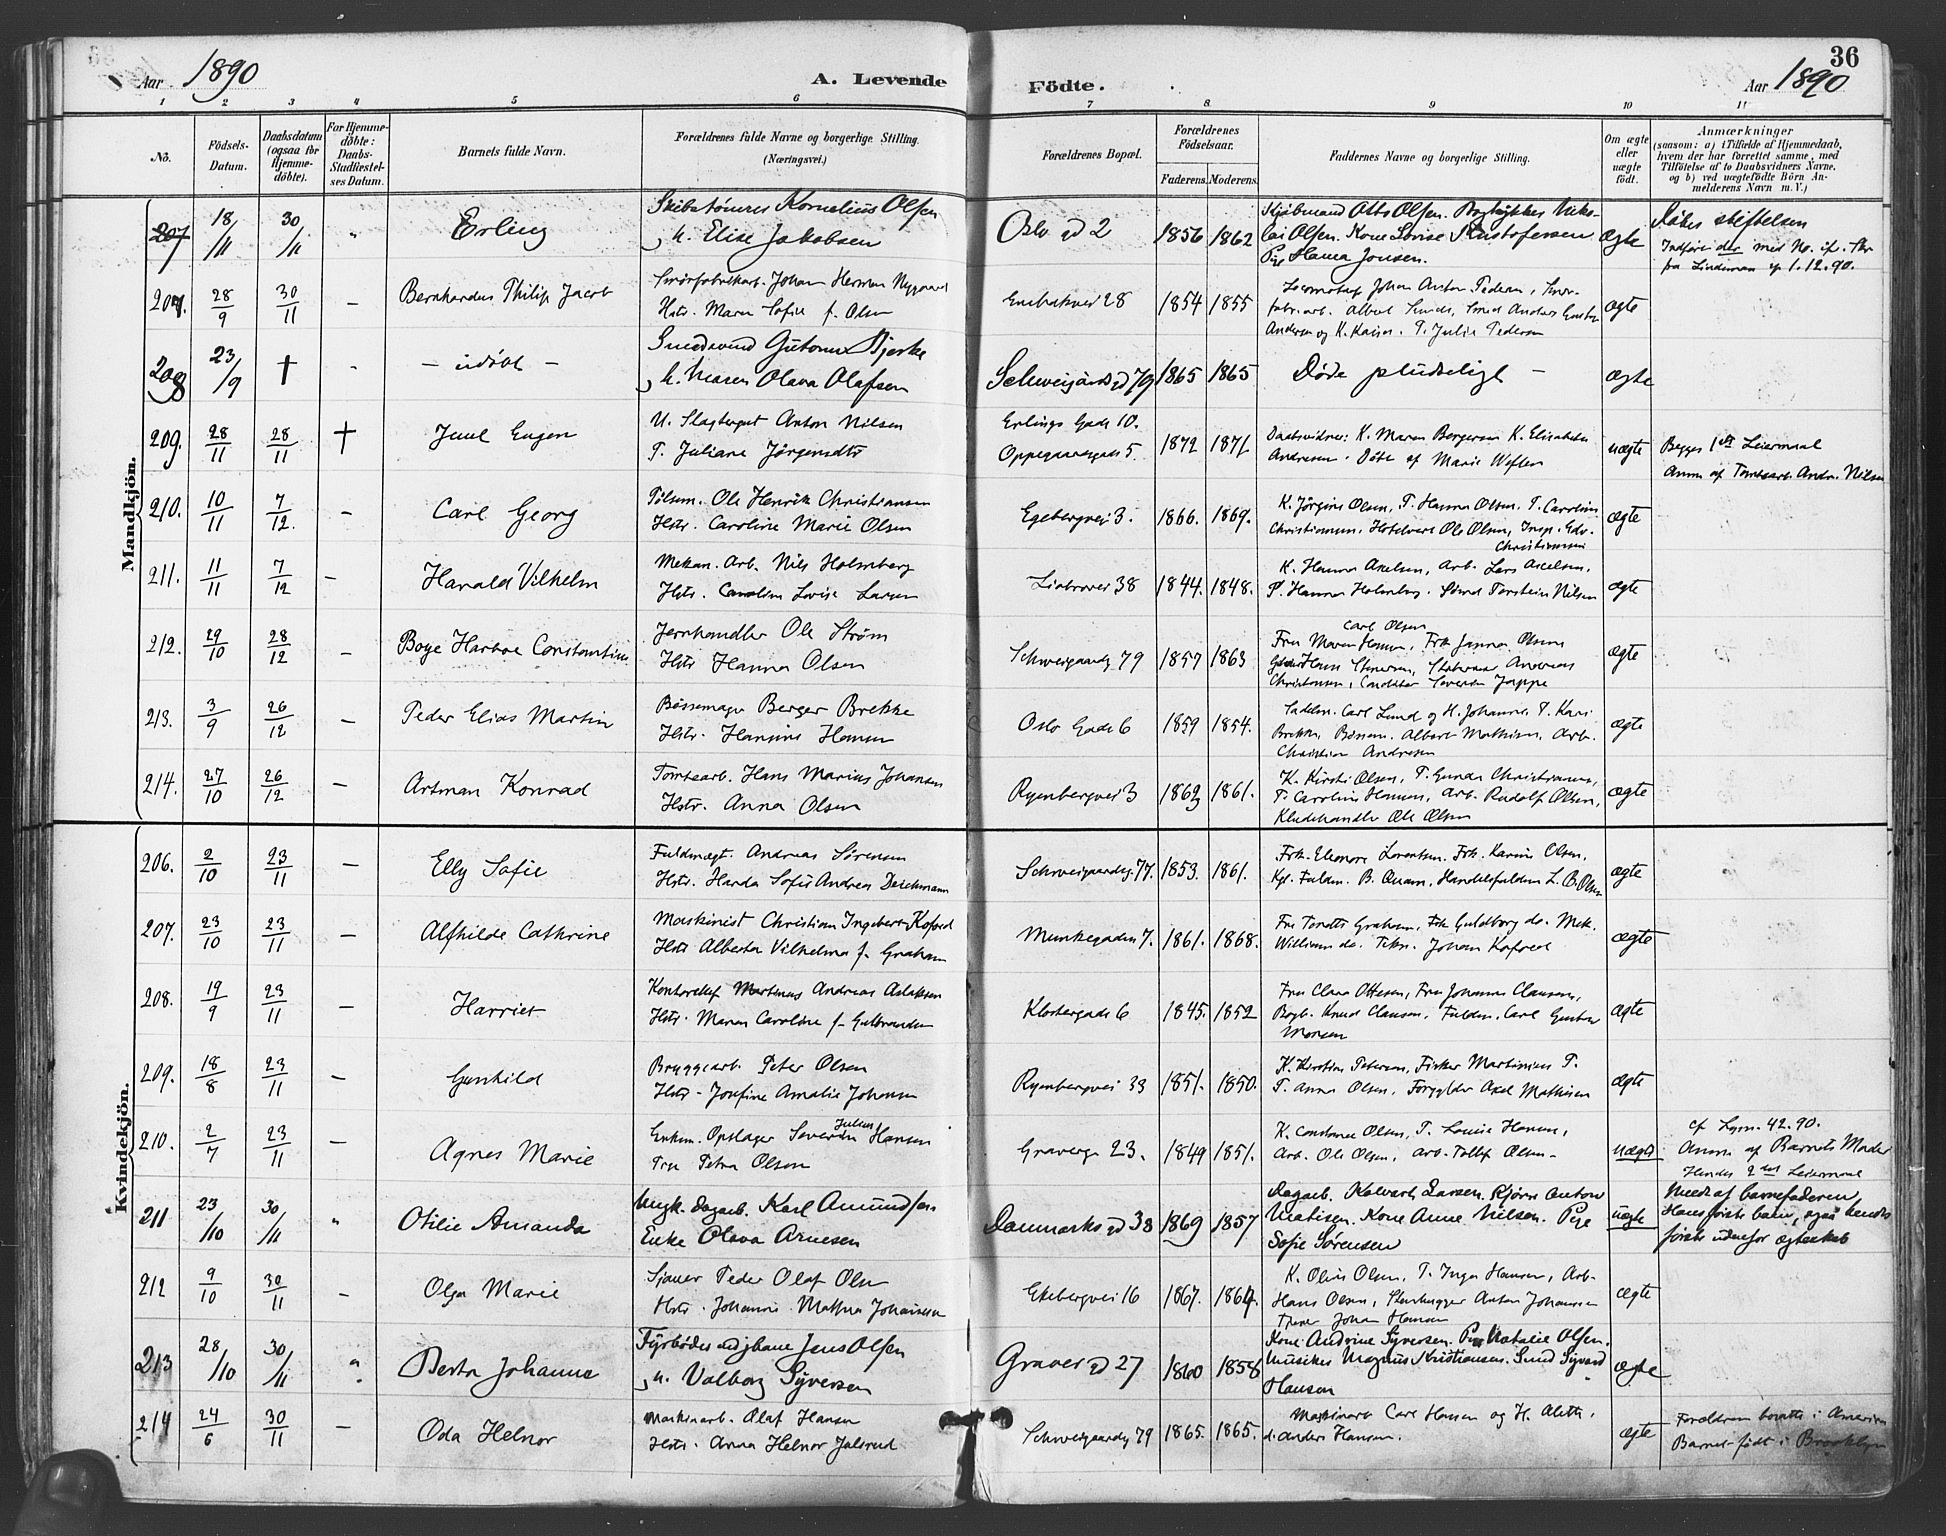 Aar 1890
A. Levende
Födte.
36
Aar 1890
1 2 3 4 5 6 7 8 9 10 11
No.
Födsels-Datum.
Daabsdatum (ogsaa for Hjemme-döbte).
For Hjemme-döbte: Daabs-Stadfæstel-ses Datum.
Barnets fulde Navn.
Forældrenes fulde Navne og borgerlige Stilling.
(Næringsvei.)
Forældrenes Bopæl.
Forældrenes Födselsaar.
Faderens. Moderens.
Faddernes Navne og borgerlige Stilling.
Om ægte eller uægte födt.
Anmærkninger
(saasom: a) i Tilfælde af Hjemmedaab,
hvem der har forrettet samme, med
Tilföielse af to Daabsvidners Navne,
og b) ved uægtefödte Börn An-
melderens Navn m. V.)
Mandkjön.
207 18/11 30/11 " Erling
Skibstömrer Kornelius Olsen
h. Elise Jakobsen
Oslo gd 2 1856 1862
Kjöbmand Otto Olsen. Bogtrykker
Olsen. Kone Lovise Kristofersen
Pige Hanna Jonsen.
ægte
stiftelsen
Indföres der med No.
fra Lindeman 1.12.90.
207. 28/9 30/11 - Bernhardus Philip Jacob
Smörfabrikarb. Johan Herman Nygaard
Hstr. Maren Sofie f. Olsen
Enebakvei 28 1854 1855
Johan Anton Pedersen,
Albert Lund, Smed
Andersen og K. T. Julie Pedersen
ægte
208 23/9 † - - udöbt -
Smedsvend Gutorm Bjerke
h. Maren Olava Olafsen
Schweigårds gd 79 1865 1865 Döde pludseligt - ægte
209. 28/11 28/11 † Juul Eugen
U. Slagtergut Anton Nilsen
P. Juliane Jörgensdtr
Erlings Gade 10.
Oppegaardgade 5. 1872 1871
Daabsvidner: K. Maren Bergersen K. Elisabeth
Andresen. Döbt af Marie
uægte
Begges 1ste Leiermaal
Anm. af Tomtearb. Andr. Nilsen
210. 10/11 7/12. - Carl Georg
Pölsem. Ole Henrik Christiansen
Hstr. Caroline Marie Olsen
Egebergvei 3. 1866. 1869.
K. Jörgine Olsen, P. Hanna Olsen. P. Caroline
Christiansen. Ole Olsen, Insp. Edv.
Christiansen
ægte
211. 11/11 7/12 - Harald Vilhelm
Mekan. Arb. Nils Holmberg
Hstr. Caroline Lovise Larsen
Liabrovei 38 1844. 1848.
K. Hanna Axelsen, Arb. Lars Axelsen,
P. Hanna Holmberg. Smed Torstein Nilsen
ægte
212. 29/10 28/12 - Boye Harboe Constantius
Jernhandler Ole Ström
Hstr Hanna Olsen
Schweigaardsg 79 1857 1863
Carl Olsen
Fru Maren Hansen, Frk. Janna Olsen
Andreas
Christensen, Severin Jappe
ægte
213. 3/9 26/12 - Peder Elias Martin
Bössemager Berger Brekke
Hstr. Hansine Hansen
Oslo Gade 6 1859 1854.
Carl Lund og H. Johanne, P. Kari
Brekke, Bössem. Albert Mathisen, Arb.
Christian Andresen
ægte
214. 27/10 26/12 - Artman Konrad
Tomtearb. Hans Marius Johansen
Hstr. Anna Olsen
Ryenbergvei 3 1863 1861.
K. Kirsti Olsen, P. Gunda Christiansen,
P. Caroline Hansen, Arb. Rudolf Olsen,
Kludehandler Ole Olsen
ægte
Kvindekjön.
206. 2/10 23/11 - Elly Sofie
Fuldmægt. Andreas Sörensen
Hstr. Harda Sofie Andrea Deichmann
Schweigaardsg. 77. 1853. 1861.
Frk. Eleonore Lorentsen. Frk. Karine Olsen,
Kgl. Fuldm. B. Quam, Handelsfuldm. L. B. Olsen
ægte
207. 23/10 23/11 - Alfhilde Cathrine
Maskinist Christian Ingebert Kofoed
Hstr Alberta Vilhelmina f. Graham
Munkegaden 7. 1861. 1868.
Fru Graham, Frk Guldborg do. Mek.
William do. Tekn. Johan Kofoed
ægte
208. 19/9 23/11 - Harriet
Kontorchef Martinus Andreas Aslaksen
Hstr. Maren Caroline f. Gulbrandsen
Klostergade 6 1845. 1852
Fru Clara Ottesen, Fru Johanne Clausen,
Bogh. Knud Clausen, Fuldm. Carl Gustav
Monsen
ægte
209. 18/8 23/11 - Gunhild
Bryggearb. Peter Olsen
Hstr. Josefine Amalie Johansen
Ryenbergvei 33 1851. 1850.
K. Kirstine Petersen, Fisker Martinius P.
P. Anna Olsen, Forgylder Axel Mathisen
ægte
210. 2/7 23/11 - Agnes Marie
Enkem. Opslager Severin Julius Hansen
Pige Petra Olsen
Graverg. 23. 1849 1851.
K. Constance Olsen, P. Louise Hansen,
Arb. Ole Olsen, Arb. Tollef Olsen
uægte
cf Lysn. 42.90.
Anm. af Barnets Moder
Hendes 2det Leiermaal
211 23/10 30/11 " Otilie Amanda
Ungk. Dagarb. Karl Amundsen
Enke Olava Arnesen
Danmarks gd 33 1869 1857
Dagarb. Halvart Larsen. Kjörer Anton
Matisen. Kone Anne Nilsen. Pige
Sofie Sörensen
uægte
Meldt af barnefaderen,
Hans förste barn, også hendes
förste udenfor ægteskab
212 9/10 30/11 - Olga Marie
Sjauer Peder Olaf Olsen
Hstr. Johanne Mathea Johansen
Ekebergvei 16 1867. 1864.
K. Oline Olsen, P. Inga Hansen, Arb.
Hans Olsen, Stenhugger Anton Johannesen
Johan Hansen
ægte
213 28/10 30/11 " Berta Johanne
Fyrböder ved jbane Jens Olsen
h. Valborg Syversen
Graver gd 27 1860 1858
Kone Andrine Syversen. Pige Natalie Olsen.
Musiker Magnus Kristiansen. Smed Syvard
Hansen
ægte
214 24/6 30/11 - Oda Helnor
Maskinarb. Olaf Hansen
Hstr. Anna Helnor Jalsrud
Schweigaardsg 79 1865. 1865.
Maskinarb Carl Hansen og H. Alette,
d. Anders Hansen.
ægte
Forældrene bosatte i Amerika
Barnet födt i Brooklyn